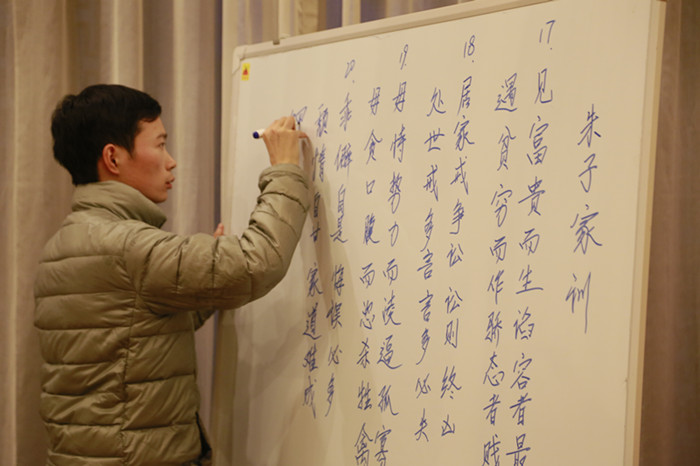 朱子家训
17. 见富贵而生谄容者最
遇贫穷而作骄态者贱
18. 居家戒争讼讼则终凶
处世戒多言言多必失
19. 毋恃势力而凌逼孤寡
毋贪口腹而恣杀牲禽
20. 乖僻自是悔误必多
颓惰自甘家道难成